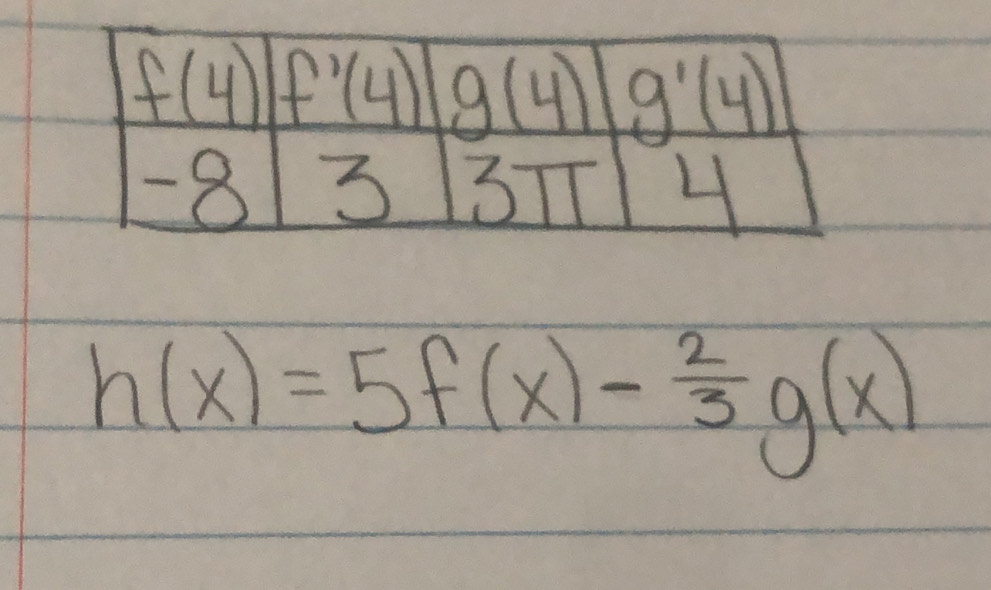 f(4) f'(4) g(4) g'(4)
-8 3 3π 4
h(x) = 5f(x) - 2/3 g(x)